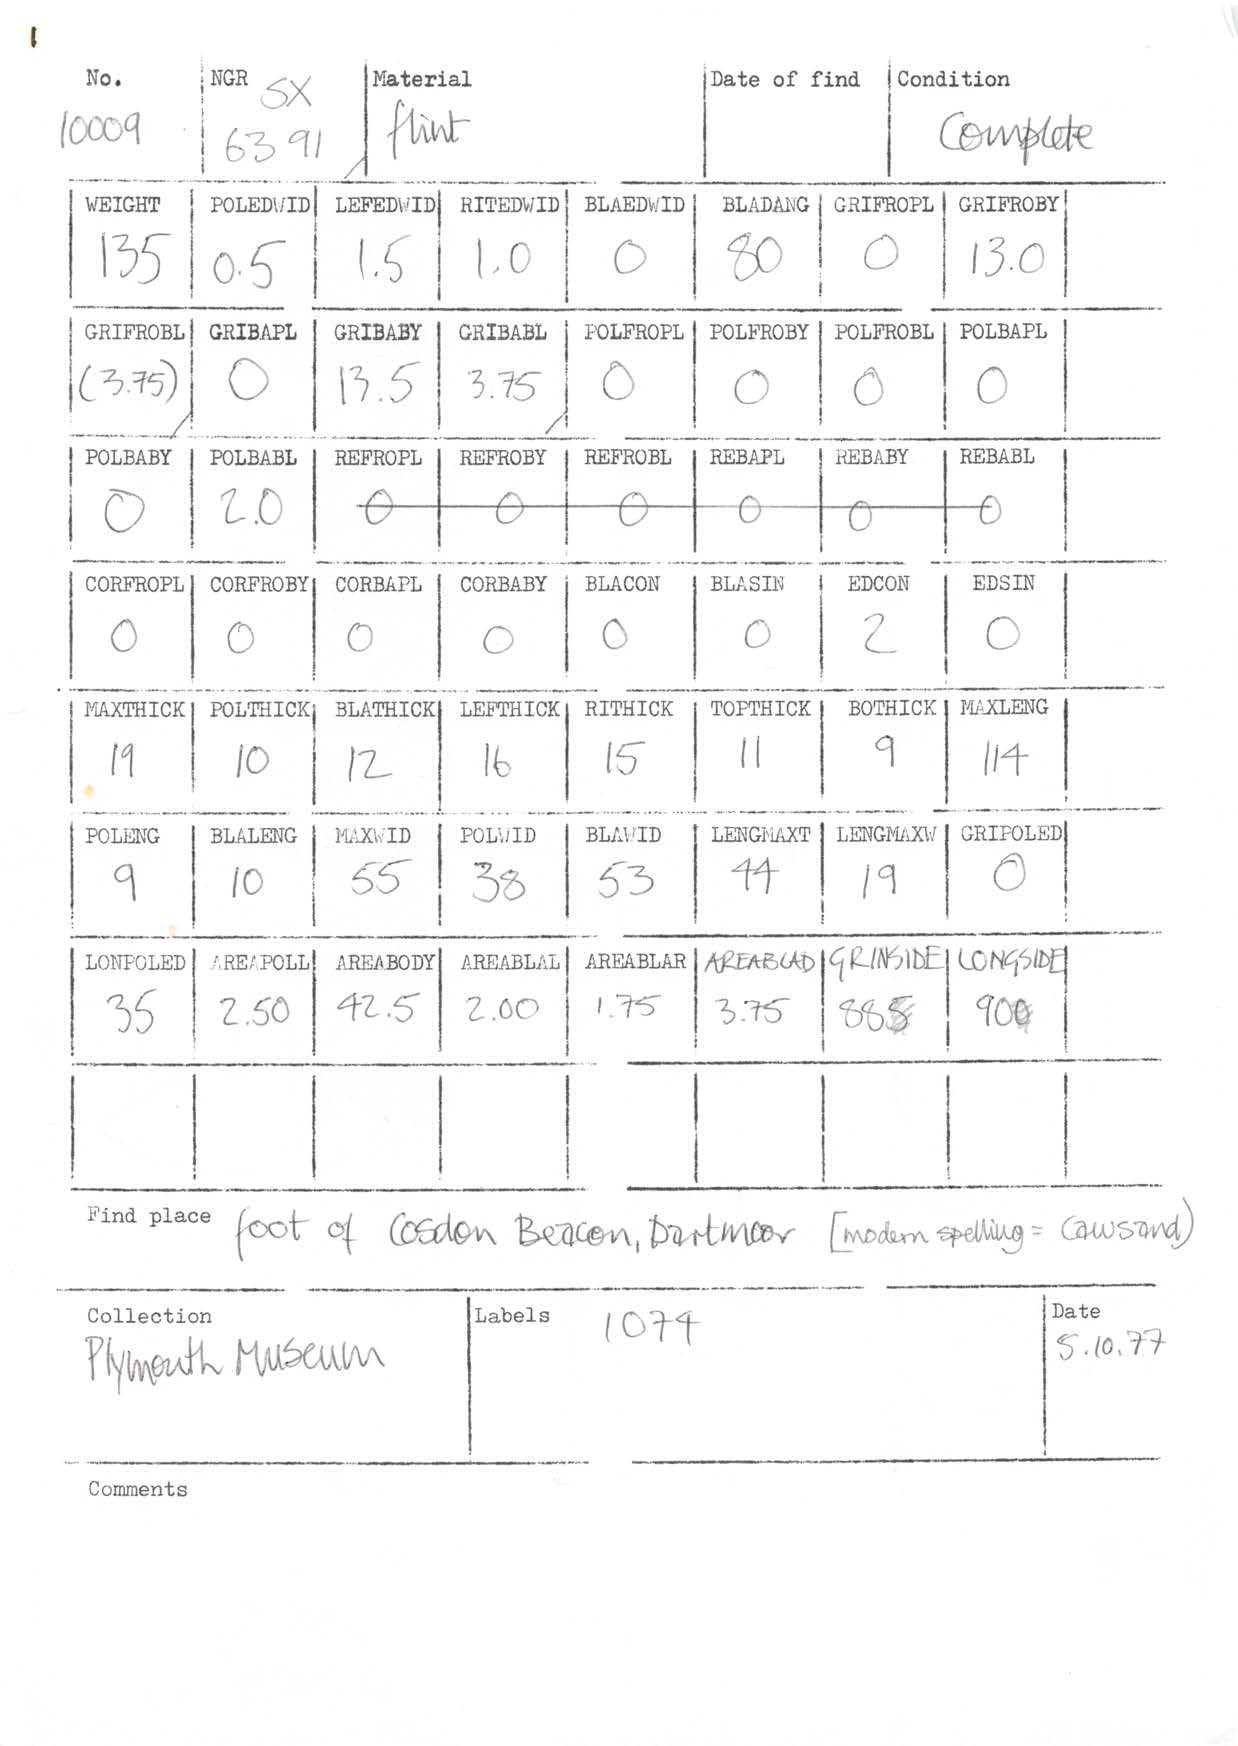 1
No. NGR Material Date of find Condition
10009 SX 6391 flint Complete
WEIGHT POLEDWID LEFEDWID RITEDWID BLAEDWID BLADANG GRIFROPL GRIFROBY
135 0.5 1.5 1.0 0 80 0 13.0
GRIFROBL GRIBAPL GRIBABY GRIBABL POLFROPL POLFROBY POLFROBL POLBAPL
(3.75) 0 13.5 3.75 0 0 0 0
POLBABY POLBABL REFROPL REFROBY REFROBL REBAPL REBABY REBABL
0 2.0 0 0 0 0 0 0
CORFROPL CORFROBY CORBAPL CORBABY BLACON BLASIN EDCON EDSIN
0 0 0 0 0 0 2 0
MAXTHICK POLTHICK BLATHICK LEFTHICK RITHICK TOPTHICK BOTHICK MAXLENG
19 10 12 16 15 11 9 114
POLENG BLALENG MAXWID POLWID BLAWID LENGMAXT LENGMAXW GRIPOLED
9 10 55 38 53 44 19 0
LONPOLED AREAPOLL AREABODY AREABLAL AREABLAR AREABLAD GRINSIDE LONGSIDE
35 2.50 42.5 2.00 1.75 3.75 885 900
Find place foot of Cosdon Beacon, Dartmoor [modern spelling = Cawsand)
Collection Labels 1074 Date
Plymouth Museum 5.10.77
Comments